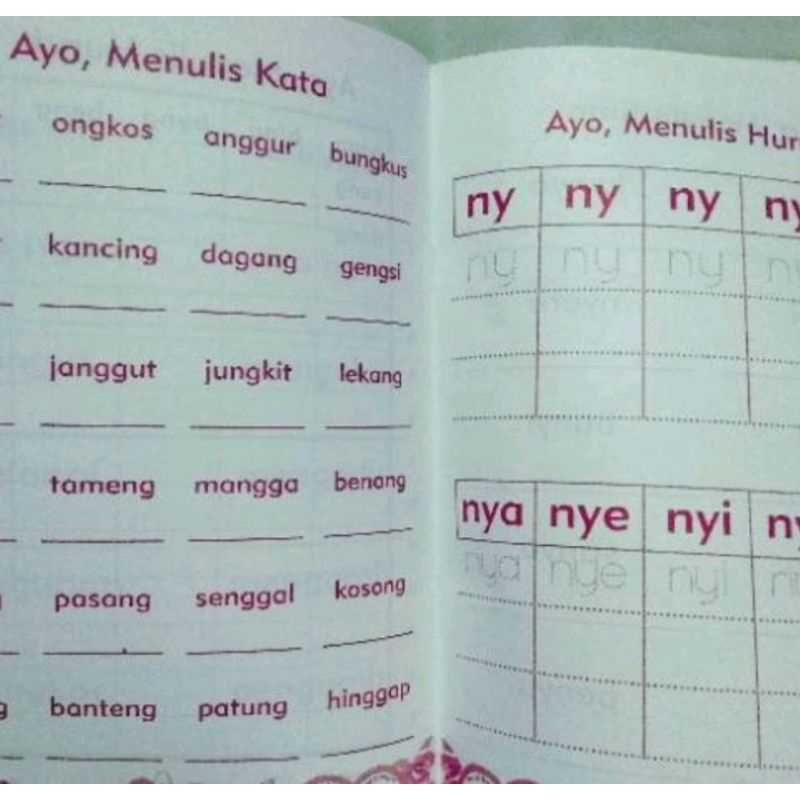 Ayo, Menulis Kata
ongkos anggur bungkus
kancing dagang gengsi
janggut jungkit lekang
tameng mangga benang
pasang senggal kosong
banteng patung hinggap
Ayo, Menulis
ny ny ny
ny ny ny
nya nye nyi
nya nye nyi